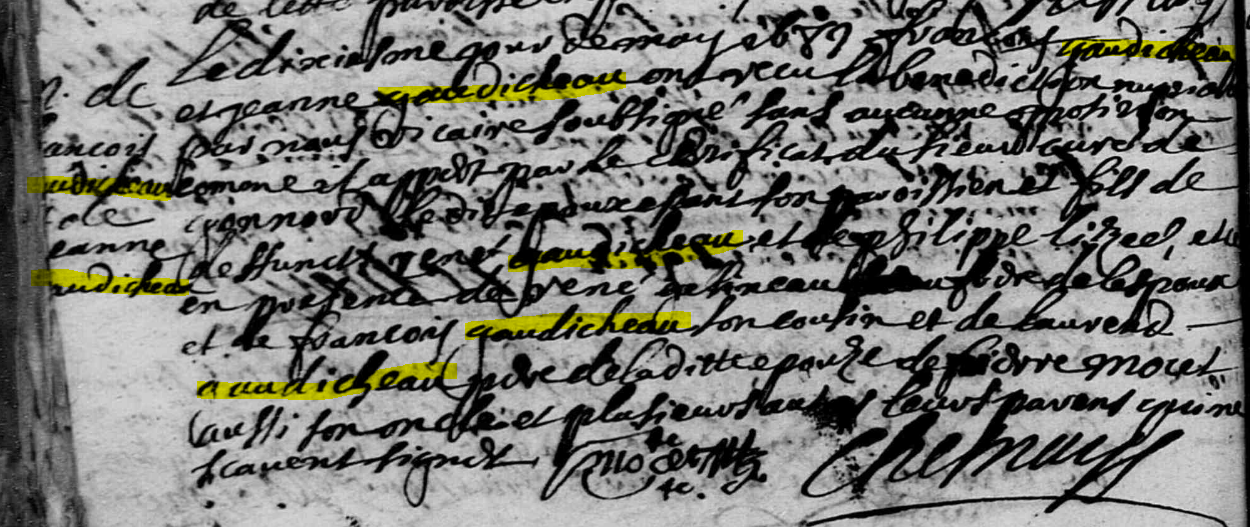 de cette paroisse
Le dixiesme jour de may 1689 françois gaudicheau
et jeanne gaudicheau ont receu la benediction nuptiale
par nous vicaire soubsigné sans aucunne opotition
comme il appert par le certificat du sieur curé de
gonnord ledit epoux estant son paroissien et fils de
deffunct rené gaudicheau et de philippe et
en presence de rené de lespoux
et de françois gaudicheau son cousin et de laurend
gaudicheau pere de laditte epouze de pierre mouet
aussi son oncle et plusieurs autres leurs parens qui ne
scavent signer
n. de
ancois
udicheau
de
eanne
udicheau